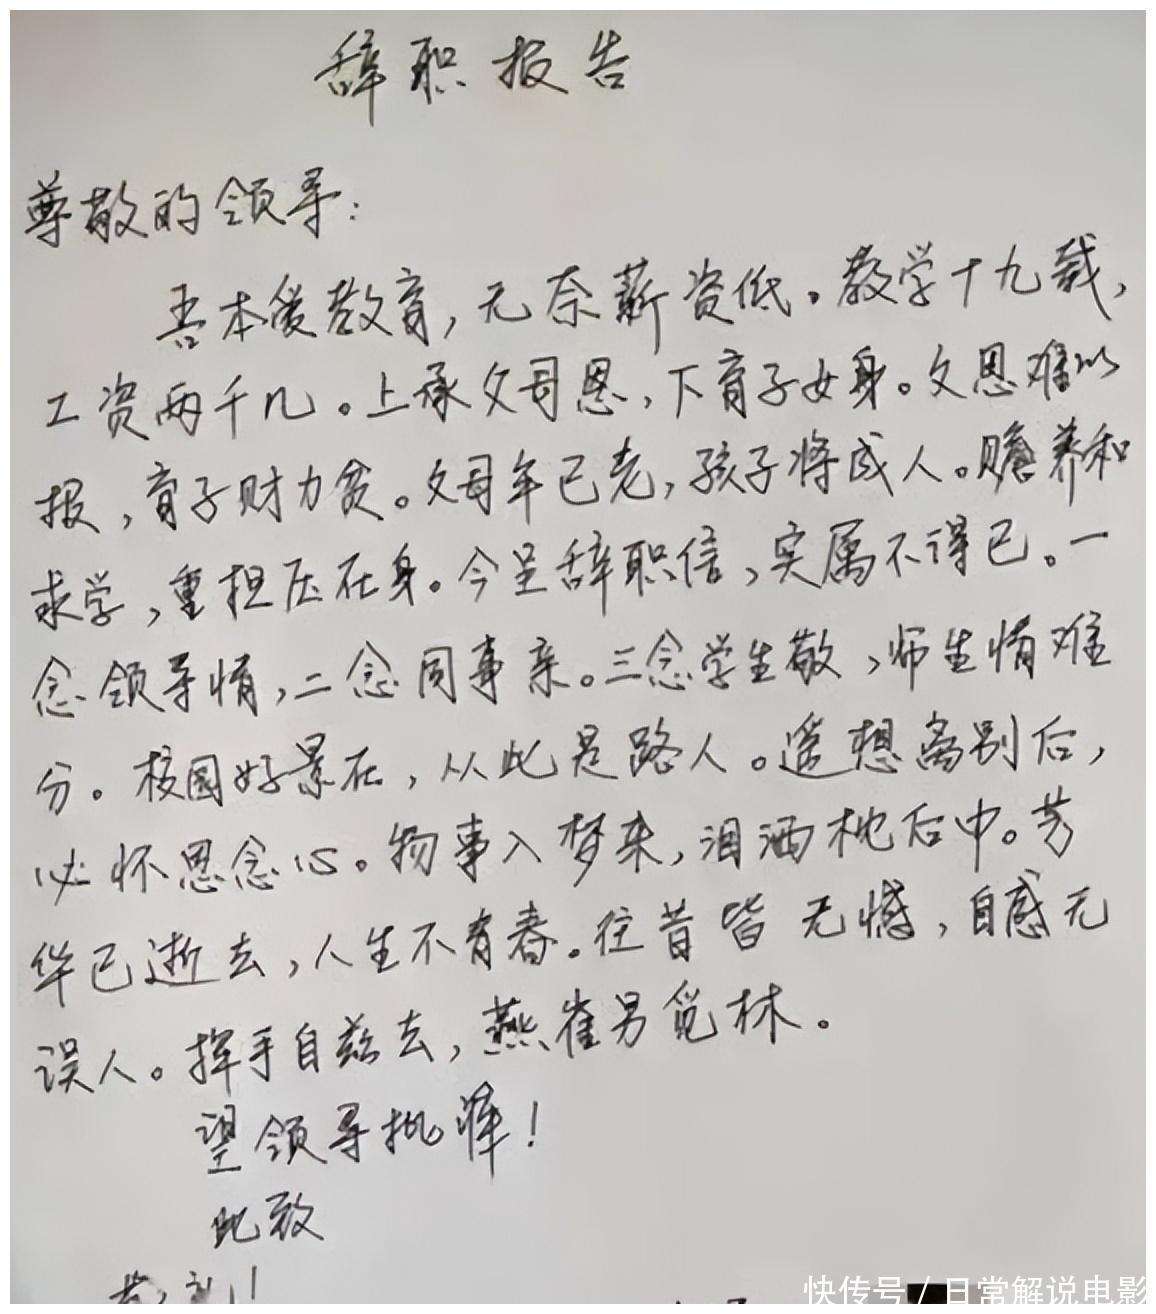 辞职报告
尊敬的领导：
吾本爱教育，无奈薪资低。教学十九载，
工资两千几。上承父母恩，下育子女身。父恩难以
报，育子财力贫。父母年已老，孩子将成人。赡养和
求学，重担压在身。今呈辞职信，实属不得已。一
念领导情，二念同事亲。三念学生敬，师生情难
分。校园好景在，从此是路人。遥想离别后，
必怀恩念心。物事入梦来，泪洒枕后中。芳
华已逝去，人生不青春。往昔皆无憾，自感无
误人。挥手自兹去，燕雀另觅林。
望领导批准！
此致
快传号／日常解说电影